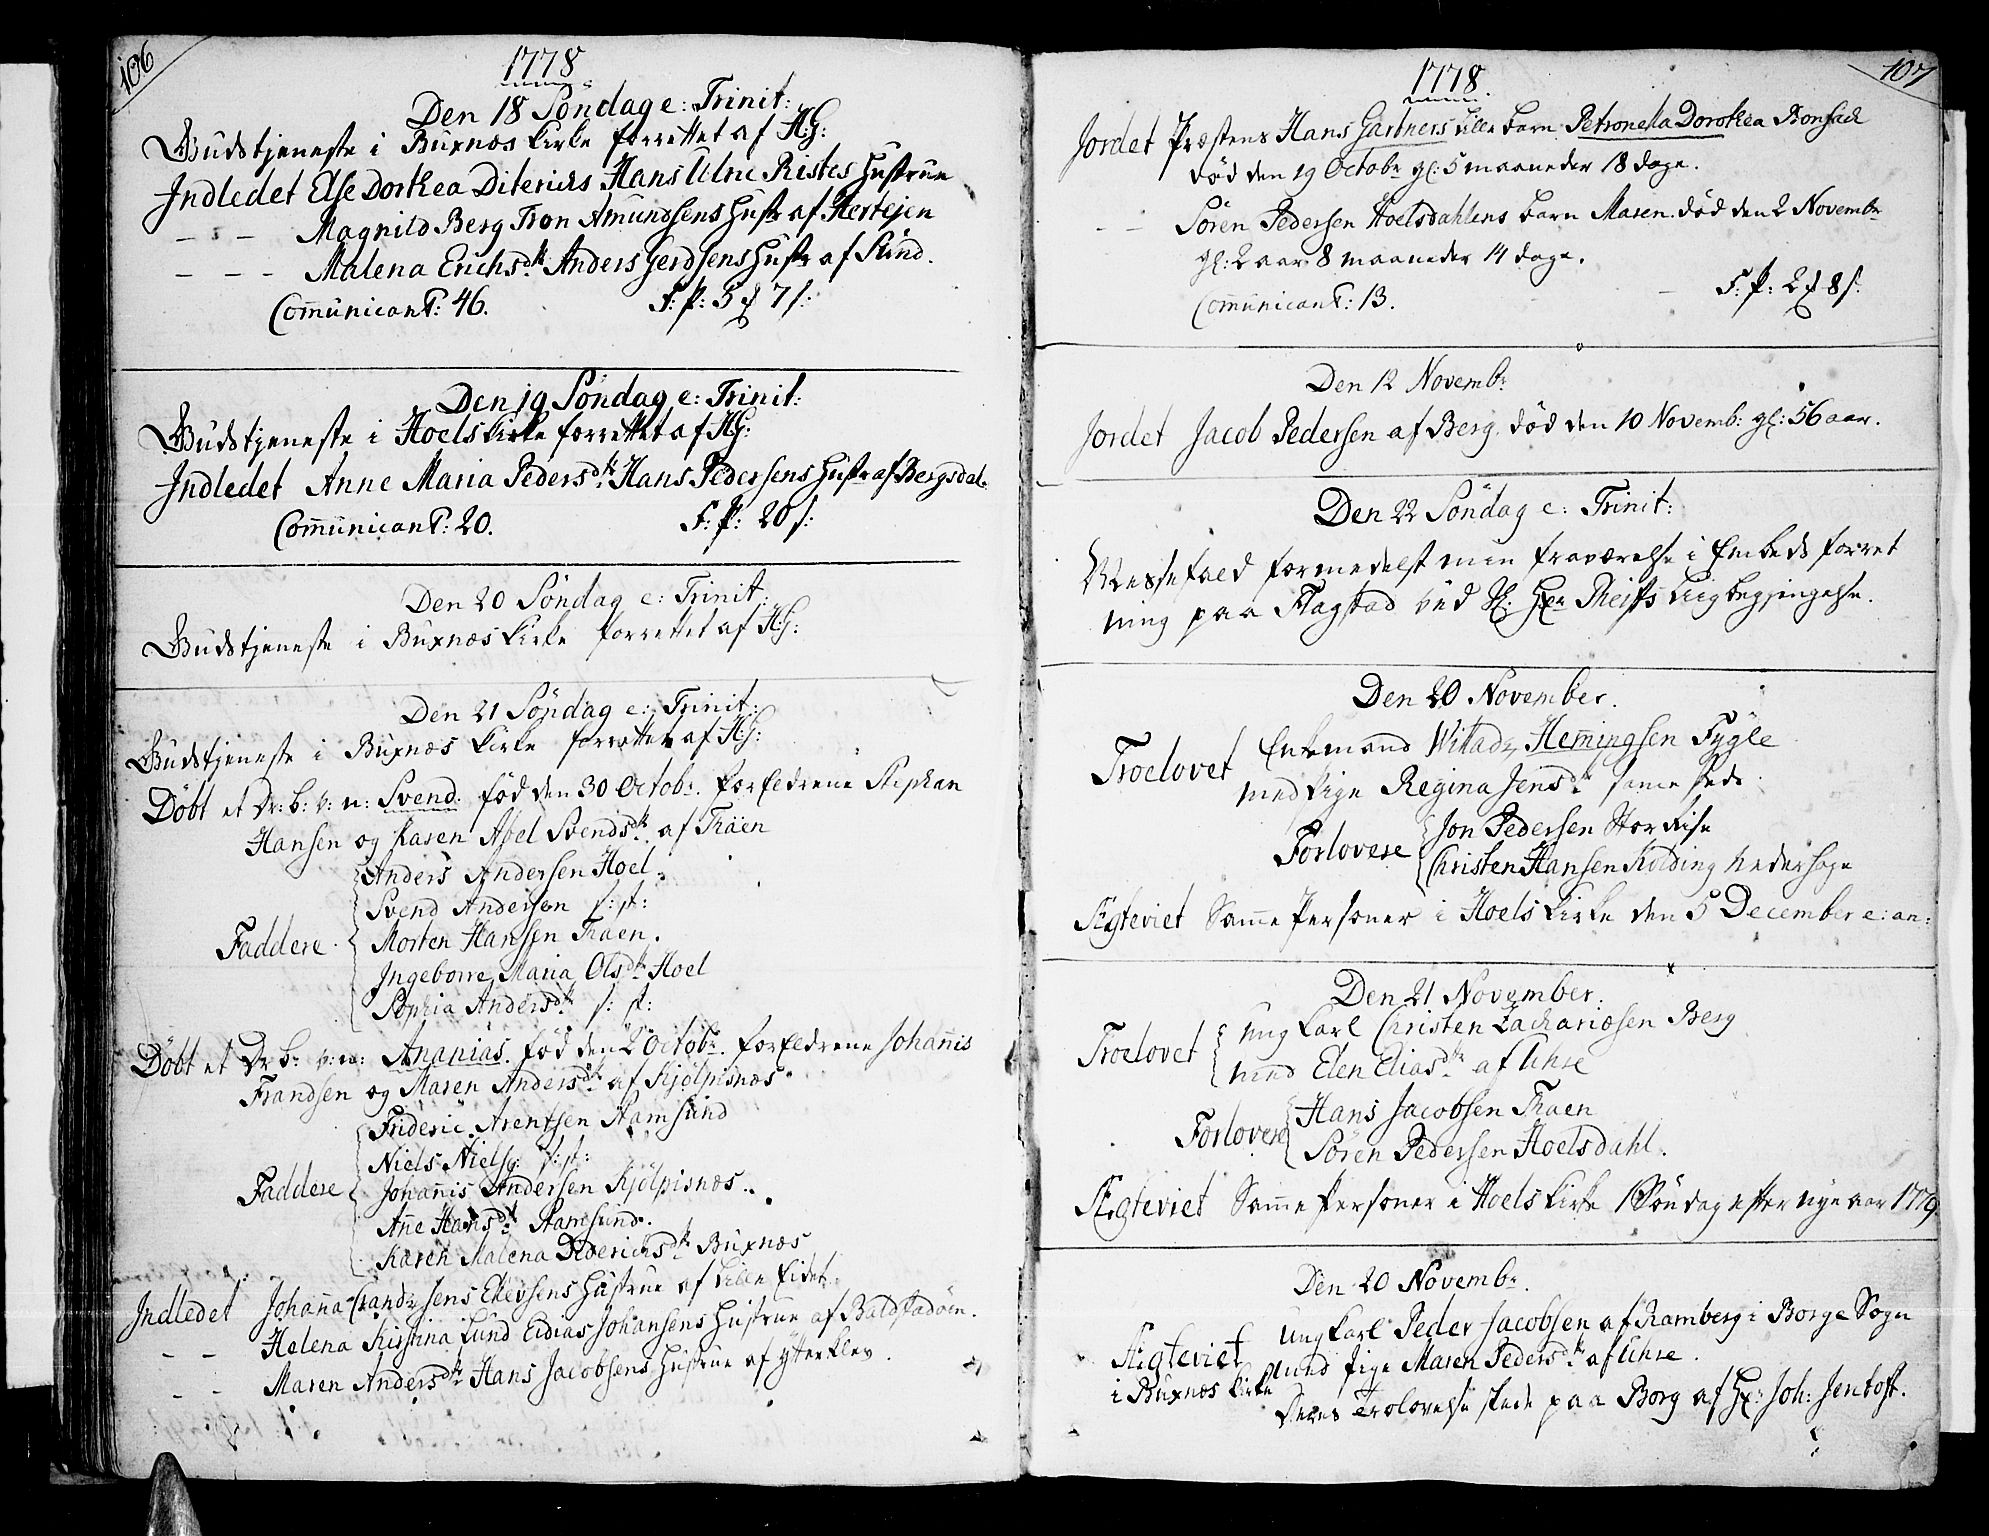 106
1778
Den 18 Söndag e: Trinit:
Gudstjeneste i Buxnæs Kirke forrettet af H:G:
Indledet Else Dorthea Diterichs Hans Ulric Ristes Hustrue
- - - Magnild Berg Tron Amundsens Hustr af Stertejen
- - - Malena Erichsdtr Anders Gerdsens Hustr af Sünd.
Communicant: 46. F: P: 3 7 s:
Den 19 Söndag e: Trinit:
Gudstjeneste i Hoels Kirke forrettet af H:G:
Indledet Anne Maria Pedersdtr: Hans Pedersens Hustr af Bergsdal.
Communicant: 20. F: P: 20 s:
Den 20 Söndag e: Trinit:
Gudstjeneste i Buxnæs Kirke forrettet af H:G:
Den 21 Söndag e: Trinit:
Gudstjeneste i Buxnæs Kirke forrettet af H:G:
Döbt et Dr: b: v: n: Svend. född den 30 Octob:. forældrene Stephan
Hansen og Karen Abel Svendsdtr. af Træen
Anders Andersen Hoel.
Svend Andersen s: st:
Faddere Morten Hansen Traen.
Ingeborre Maria Olsdtr Hoel
Sophia Andersdtr s: st:
Döbt et Dr: b: v: n: Ananias. föd den 2 Octobr. forældrene Johannis
Frandsen og Maren Andersdtr af Kjölpisnæs
Frideric Arentsen Stamsünd
Niels Nielsen s: st:
Faddere Johannis Andersen Kjölpisnæs.
Ane Hansdtr Stamsünd.
Karen Malena Diderichsdtr Buxnæs
Indledet Johanna Ellevsens Hustrue af Lille Eidet.
- - Helena Kirstina Lund Edias Johansens Hustrue af Baldstadöen.
- - Maren Andersdtr Hans Jacobsens Hustrue af Ytterklev.
107
1778.
Jordet Præstens Hans Gartners lille barn Petronella Dorothea Bonsach
död den 19 Octobr gl: 5 maaneder 18 dage.
- - Sören Pedersen Hoelsdahlens barn Maren. död den 2 Novembr
gl: 2 aar 8 maaneder 14 dage.
Communicant: 13. F: P: 2 8 s:
Den 12 Novemb:
Jordet Jacob Pedersen af Berg död den 10 Novemb: gl: 56 aar.
Den 22 Söndag e: Trinit:
Messefald formedelst min fraværelse i Embeds forret
ning paa Flagstad ved Sl: Hr Liigbegjengelse.
Den 20 November.
Troelovet Enkemand Hemingsen Fygle
med Pige Regina Jensdtr samme sted.
Forlovere Jon Pedersen Storfise
Christen Hansen Kolding
Ægteviet Samme Personer i Hoels Kirke den 5 December e: an:
Den 21 November.
Troelovet ung karl Christen Zachariæsen Berg
med Elen Eliasdtr af Uhre
Forlovere Hans Jacobsen Traen
Sören Pedersen Hoelsdahl.
Ægteviet Samme Personer i Hoels Kirke 1 Söndag efter nye aar 1779.
Den 20 Novembr.
Ægteviet ung karl Peder Jacobsen af Ramberg i Borge Sogn
i Buxnæs Kirke med Pige Maren Pedersdtr af Uhre.
Deres Trolovelse skede paa Borg af Hr: Joh: Jentoft.